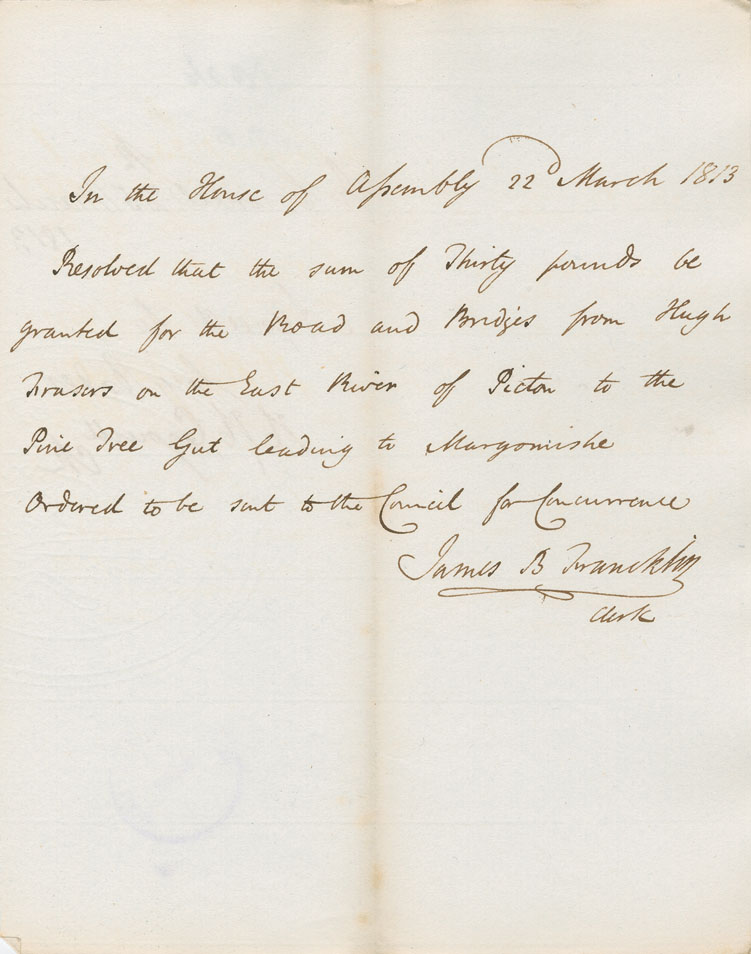 In the House of Assembly 22d March 1813
Resolved that the sum of Thirty pounds be
granted for the Road and Bridges from Hugh
Frasers on the East River of Picton to the
Pine Tree Gut leading to Margomishe
Ordered to be sent to the Council for Concurrence
James B Francklin
Clerk